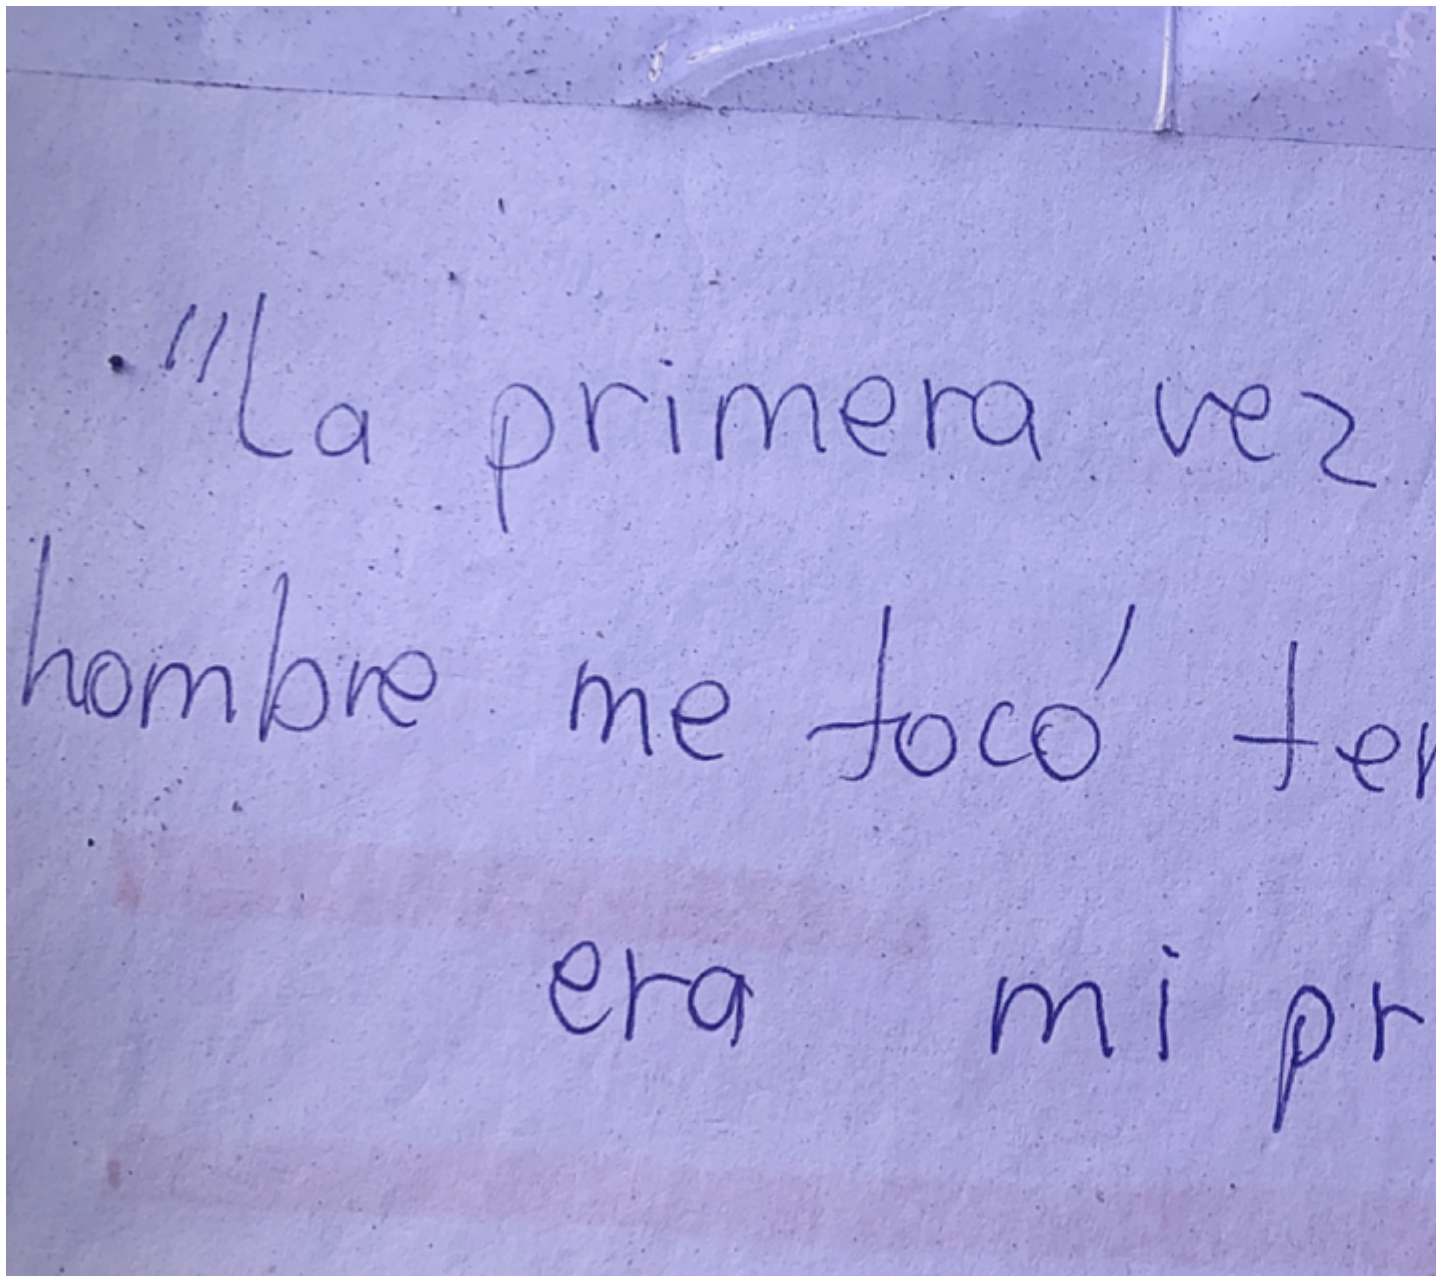 "La primera vez
hombre me tocó
era mi